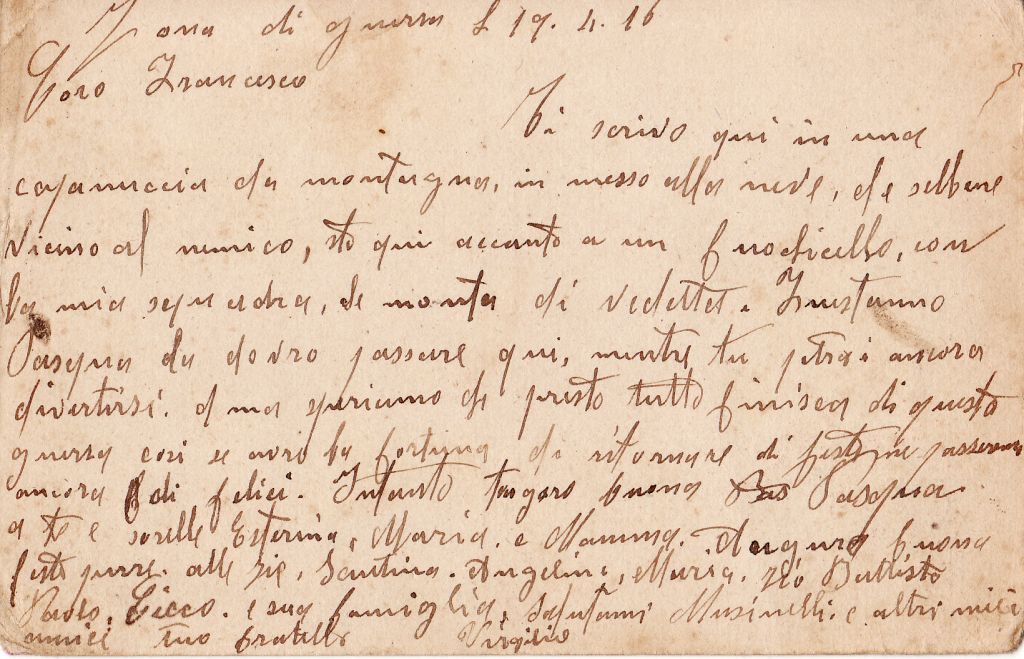 Zona di guerra li 19. 4. 16
Caro Francesco
Ti scrivo qui in una
capannuccia da montagna, in messo alla neve, e sebbene
vicino al nemico, sto qui accanto a un fuochicello, con
la mia squadra, de monta di vedetta. Quest'anno
Pasqua la dovro passare qui, mentre tu potrai ancora
divertirsi. ma speriamo che presto tutto finisca di questa
guerra cosi se avro la fortuna di ritornare di feste ne passeremo
ancora di felici. Intanto buona Pasqua
a te e sorelle Esterina, Maria. e Mamma. Auguro buona
feste purre. alle zie, Santina. Angelina, Maria. zio Battisto
Paolo, Cicco. e sua famiglia, salutami Musinelli. e altri miei
amici tuo fratello Virgilio